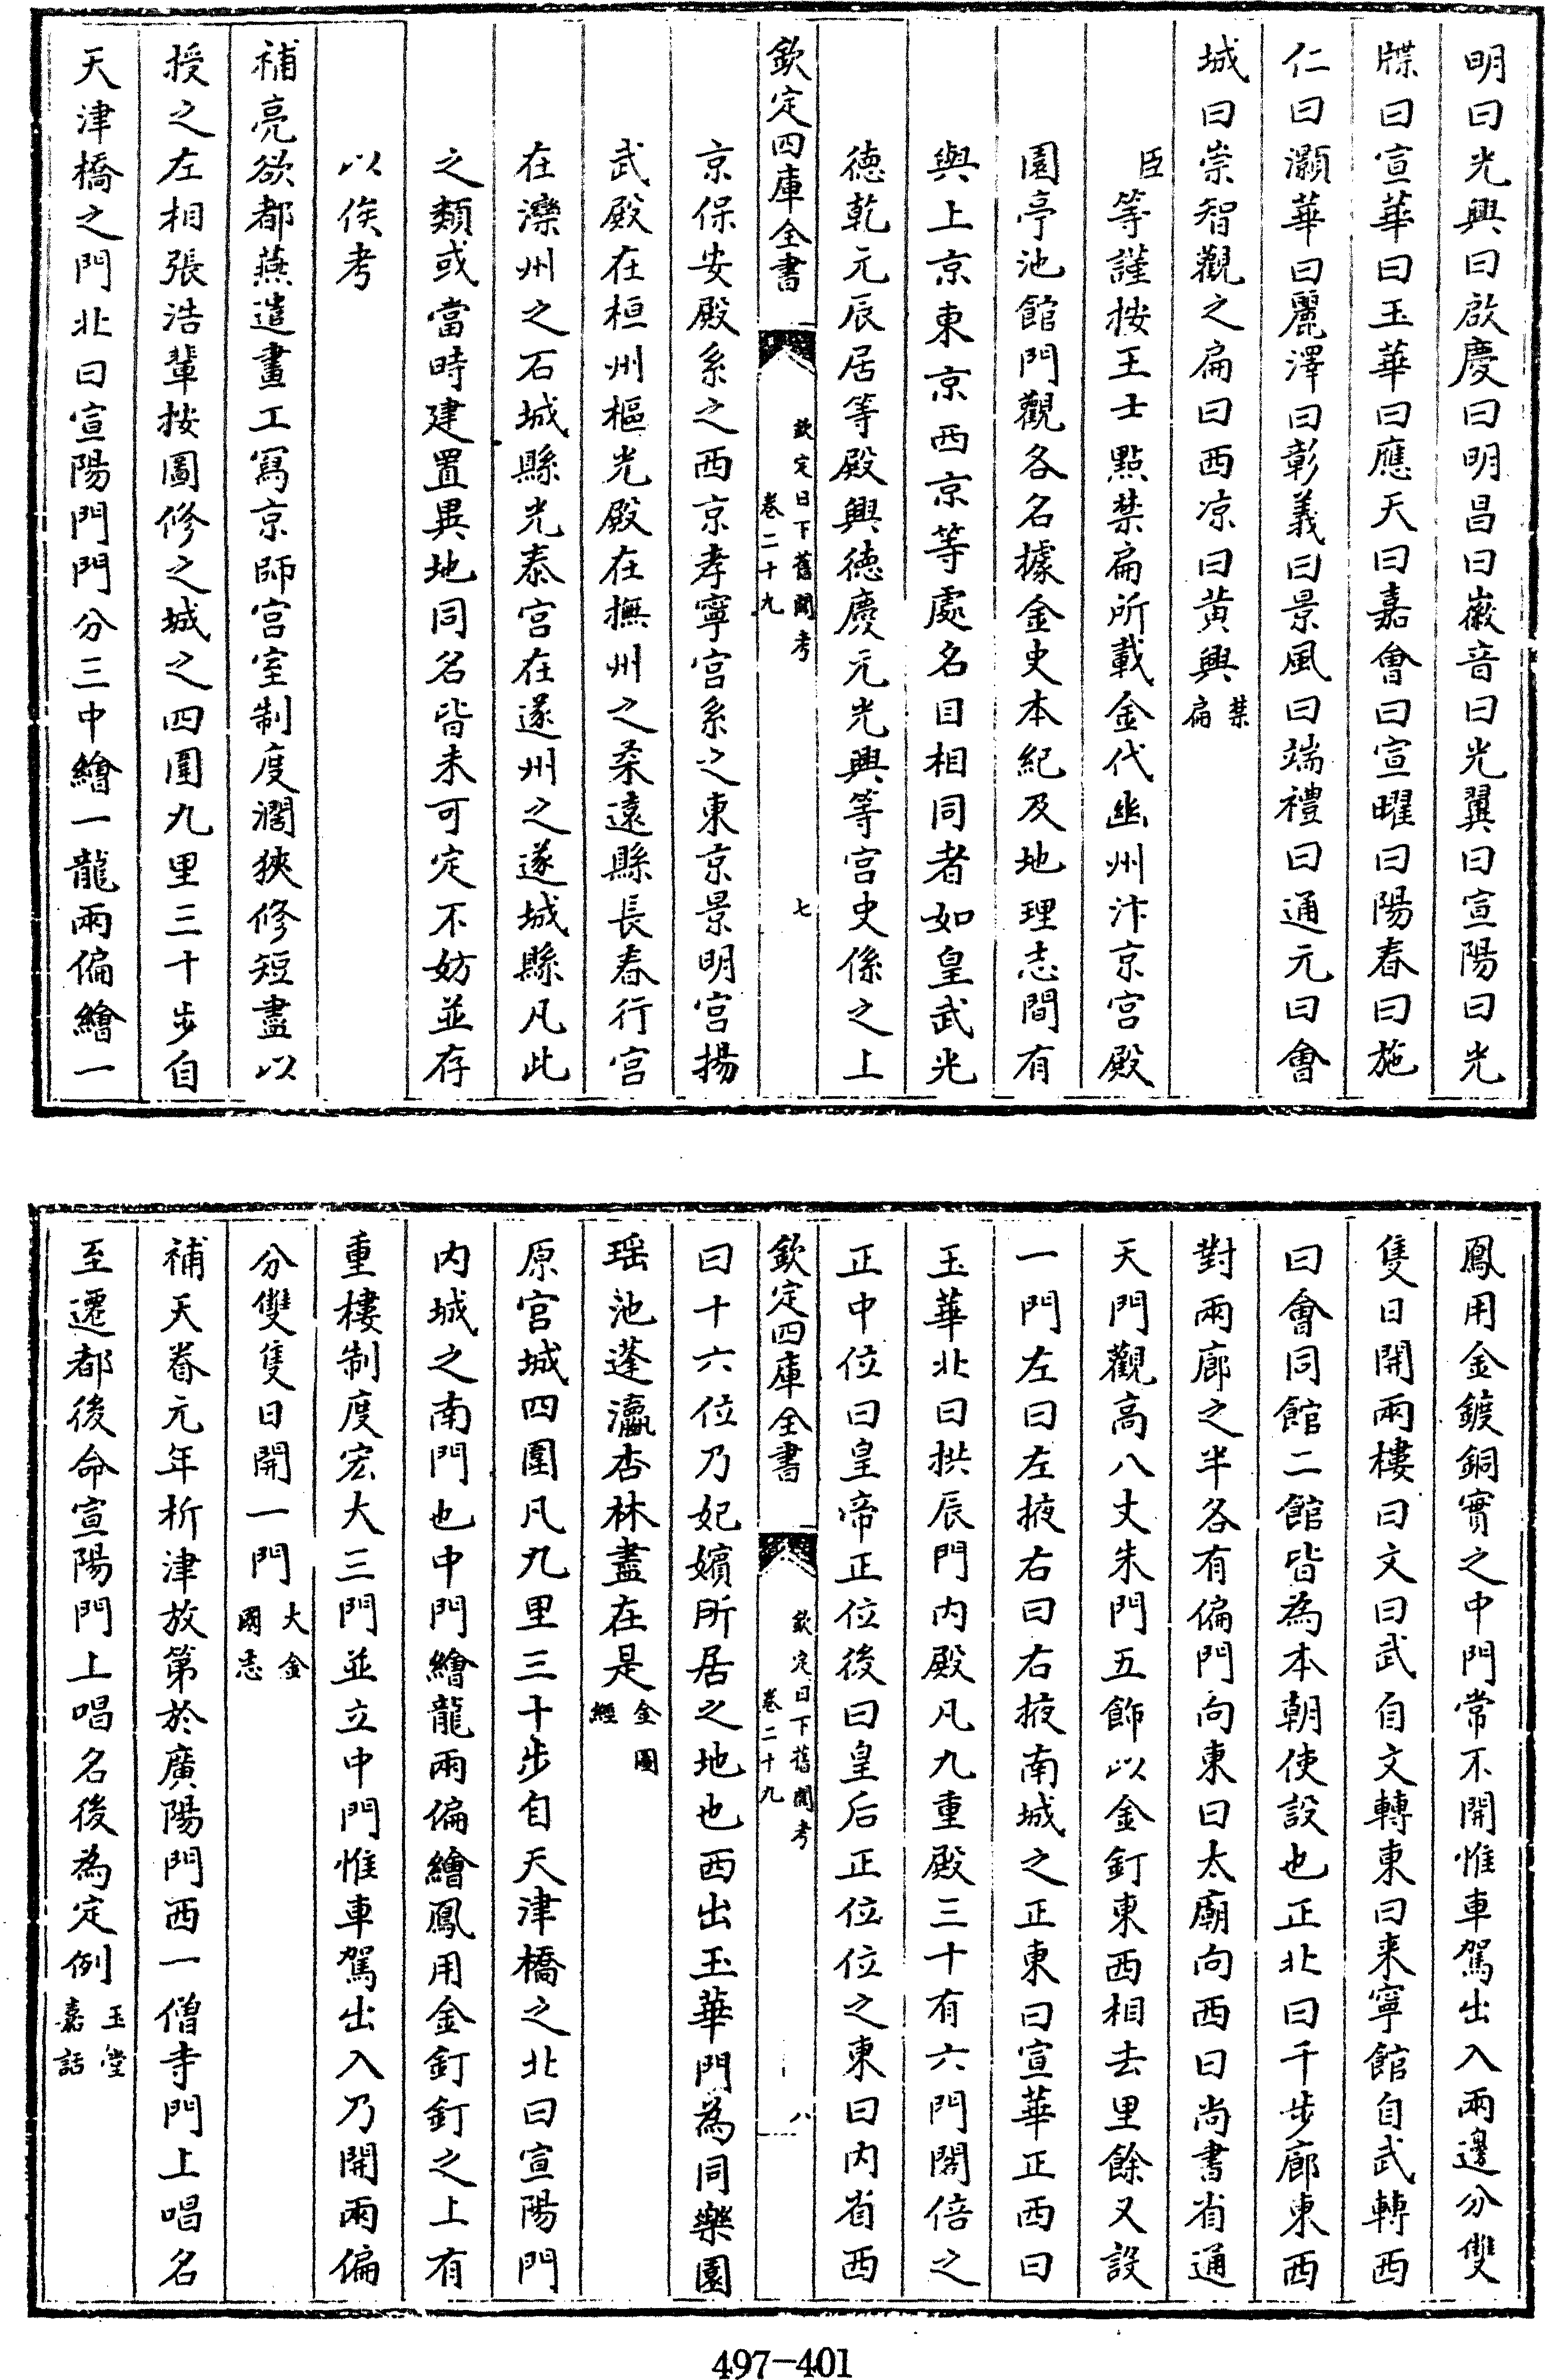 明曰光興曰啟慶曰明昌曰徽音曰光翼曰宣陽曰光
牒曰宣華曰玉華曰應天曰嘉會曰宣曜曰陽春曰施
仁曰灝華曰麗澤曰彰義曰景風曰端禮曰通元曰會
城曰崇智觀之扁曰西凉曰黄興禁扁
臣等謹按王士點禁扁所載金代幽州汴京宫殿
園亭池館門觀各名據金史本紀及地理志間有
與上京東京西京等處名目相同者如皇武光
德乾元辰居等殿興德慶元光興等宫史係之上
欽定四庫全書 欽定日下舊聞考 卷二十九 七
京保安殿系之西京孝寧宫系之東京景明宫揚
武殿在桓州樞光殿在撫州之柔遠縣長春行宫
在灤州之石城縣光泰宫在遂州之遂城縣凡此
之類或當時建置異地同名皆未可定不妨並存
以俟考
補亮欲都燕遣畫工寫京師宫室制度濶狹修短盡以
授之左相張浩輩按圖修之城之四圍九里三十步自
天津橋之門北曰宣陽門門分三中繪一龍兩偏繪一
鳳用金鍍銅實之中門常不開惟車駕出入兩邊分雙
隻日開兩樓曰文曰武自文轉東曰来寧館自武轉西
曰會同館二館皆為本朝使設也正北曰千步廊東西
對兩廊之半各有偏門向東曰太廟向西曰尚書省通
天門觀高八丈朱門五飾以金釘東西相去里餘又設
一門左曰左掖右曰右掖南城之正東曰宣華正西曰
玉華北曰拱辰門内殿凡九重殿三十有六門閣倍之
正中位曰皇帝正位後曰皇后正位位之東曰内省西
欽定四庫全書 欽定日下舊聞考 卷二十九 八
曰十六位乃妃嬪所居之地也西出玉華門為同樂園
瑶池蓬瀛杏林盡在是金圖經
原宫城四圍凡九里三十步自天津橋之北曰宣陽門
内城之南門也中門繪龍兩偏繪鳳用金釘釘之上有
重樓制度宏大三門並立中門惟車駕出入乃開兩偏
分雙隻日開一門大金國志
補天眷元年析津放第於廣陽門西一僧寺門上唱名
至遷都後命宣陽門上唱名後為定例玉堂嘉話
497-401